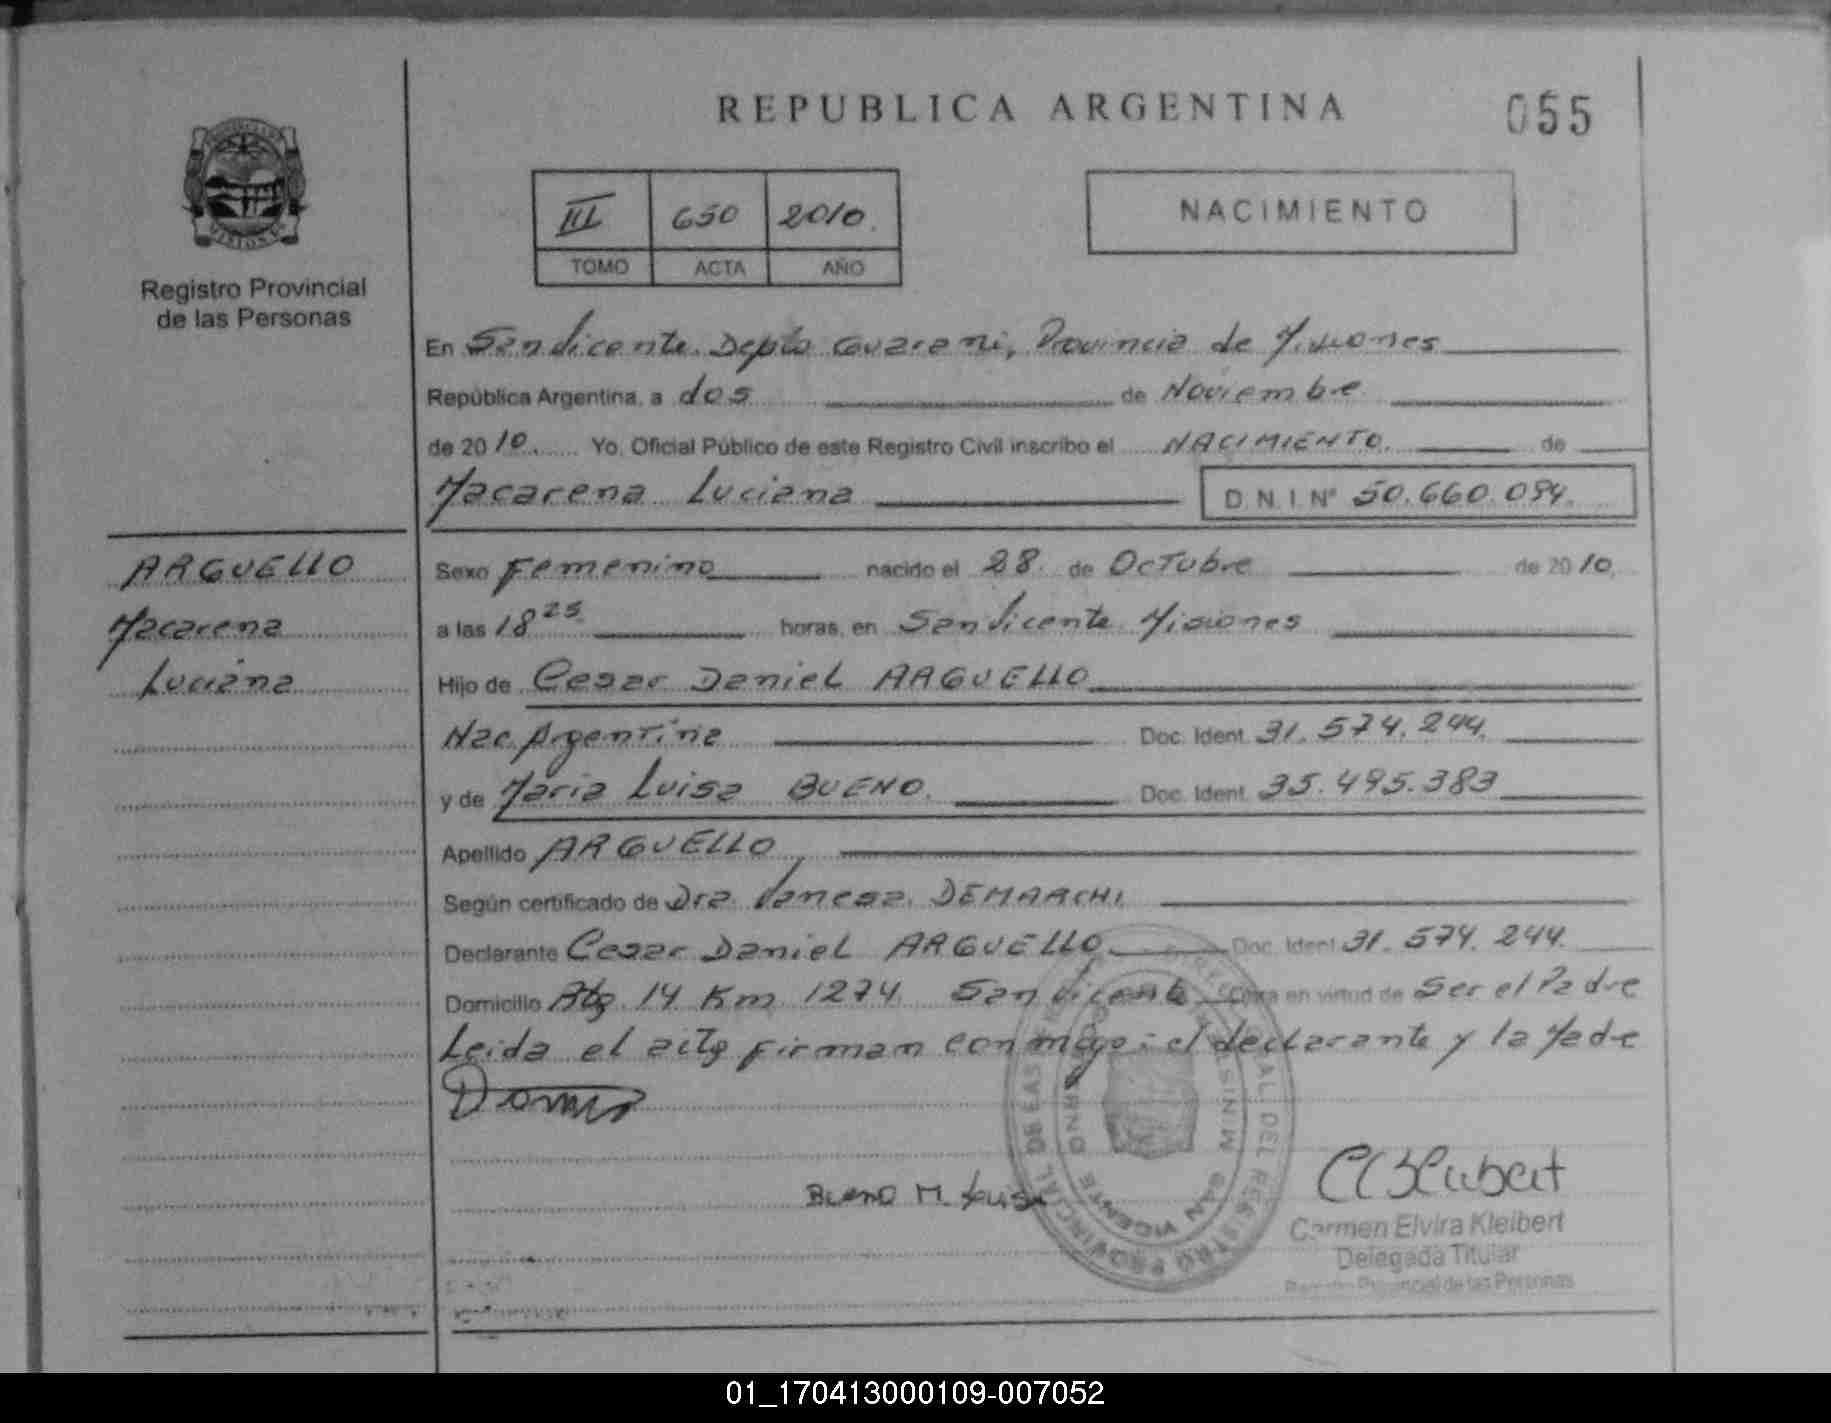 REPUBLICA ARGENTINA
055
Registro Provincial
de las Personas
III 650 2010.
TOMO ACTA AÑO
NACIMIENTO
En San Vicente. Depto Guarani, Provincia de Misiones
República Argentina, a dos de Noviembre
de 2010. Yo, Oficial Público de este Registro Civil inscribo el NACIMIENTO. de
Macarena Luciana D.N.I. Nº 50.660.094.
ARGUELLO
Macarena
Luciana
Sexo Femenino nacido el 28. de OcTubre de 2010.
a las 18 25 horas, en San Vicente Misiones
Hijo de Cesar Daniel ARGUELLO
Nac. ArgenTina Doc. Ident. 31.574.244.
y de Maria Luisa BUENO. Doc. Ident. 35.495.383
Apellido ARGUELLO
Según certificado de Dra. Vanesa. DEMARCHI.
Declarante Cesar Daniel ARGUELLO Doc. Ident. 31.574.244.
Domicilio Rta. 14 Km 1274 San Vicente Obra en virtud de Ser el Padre
Leida el acta firman conmigo: el declarante y la Madre
BUENO M. Luisa
REGISTRO PROVINCIAL DE
SAN VICENTE
Carmen Elvira Kleibert
Delegada Titular
Registro Provincial de las Personas
01_170413000109-007052